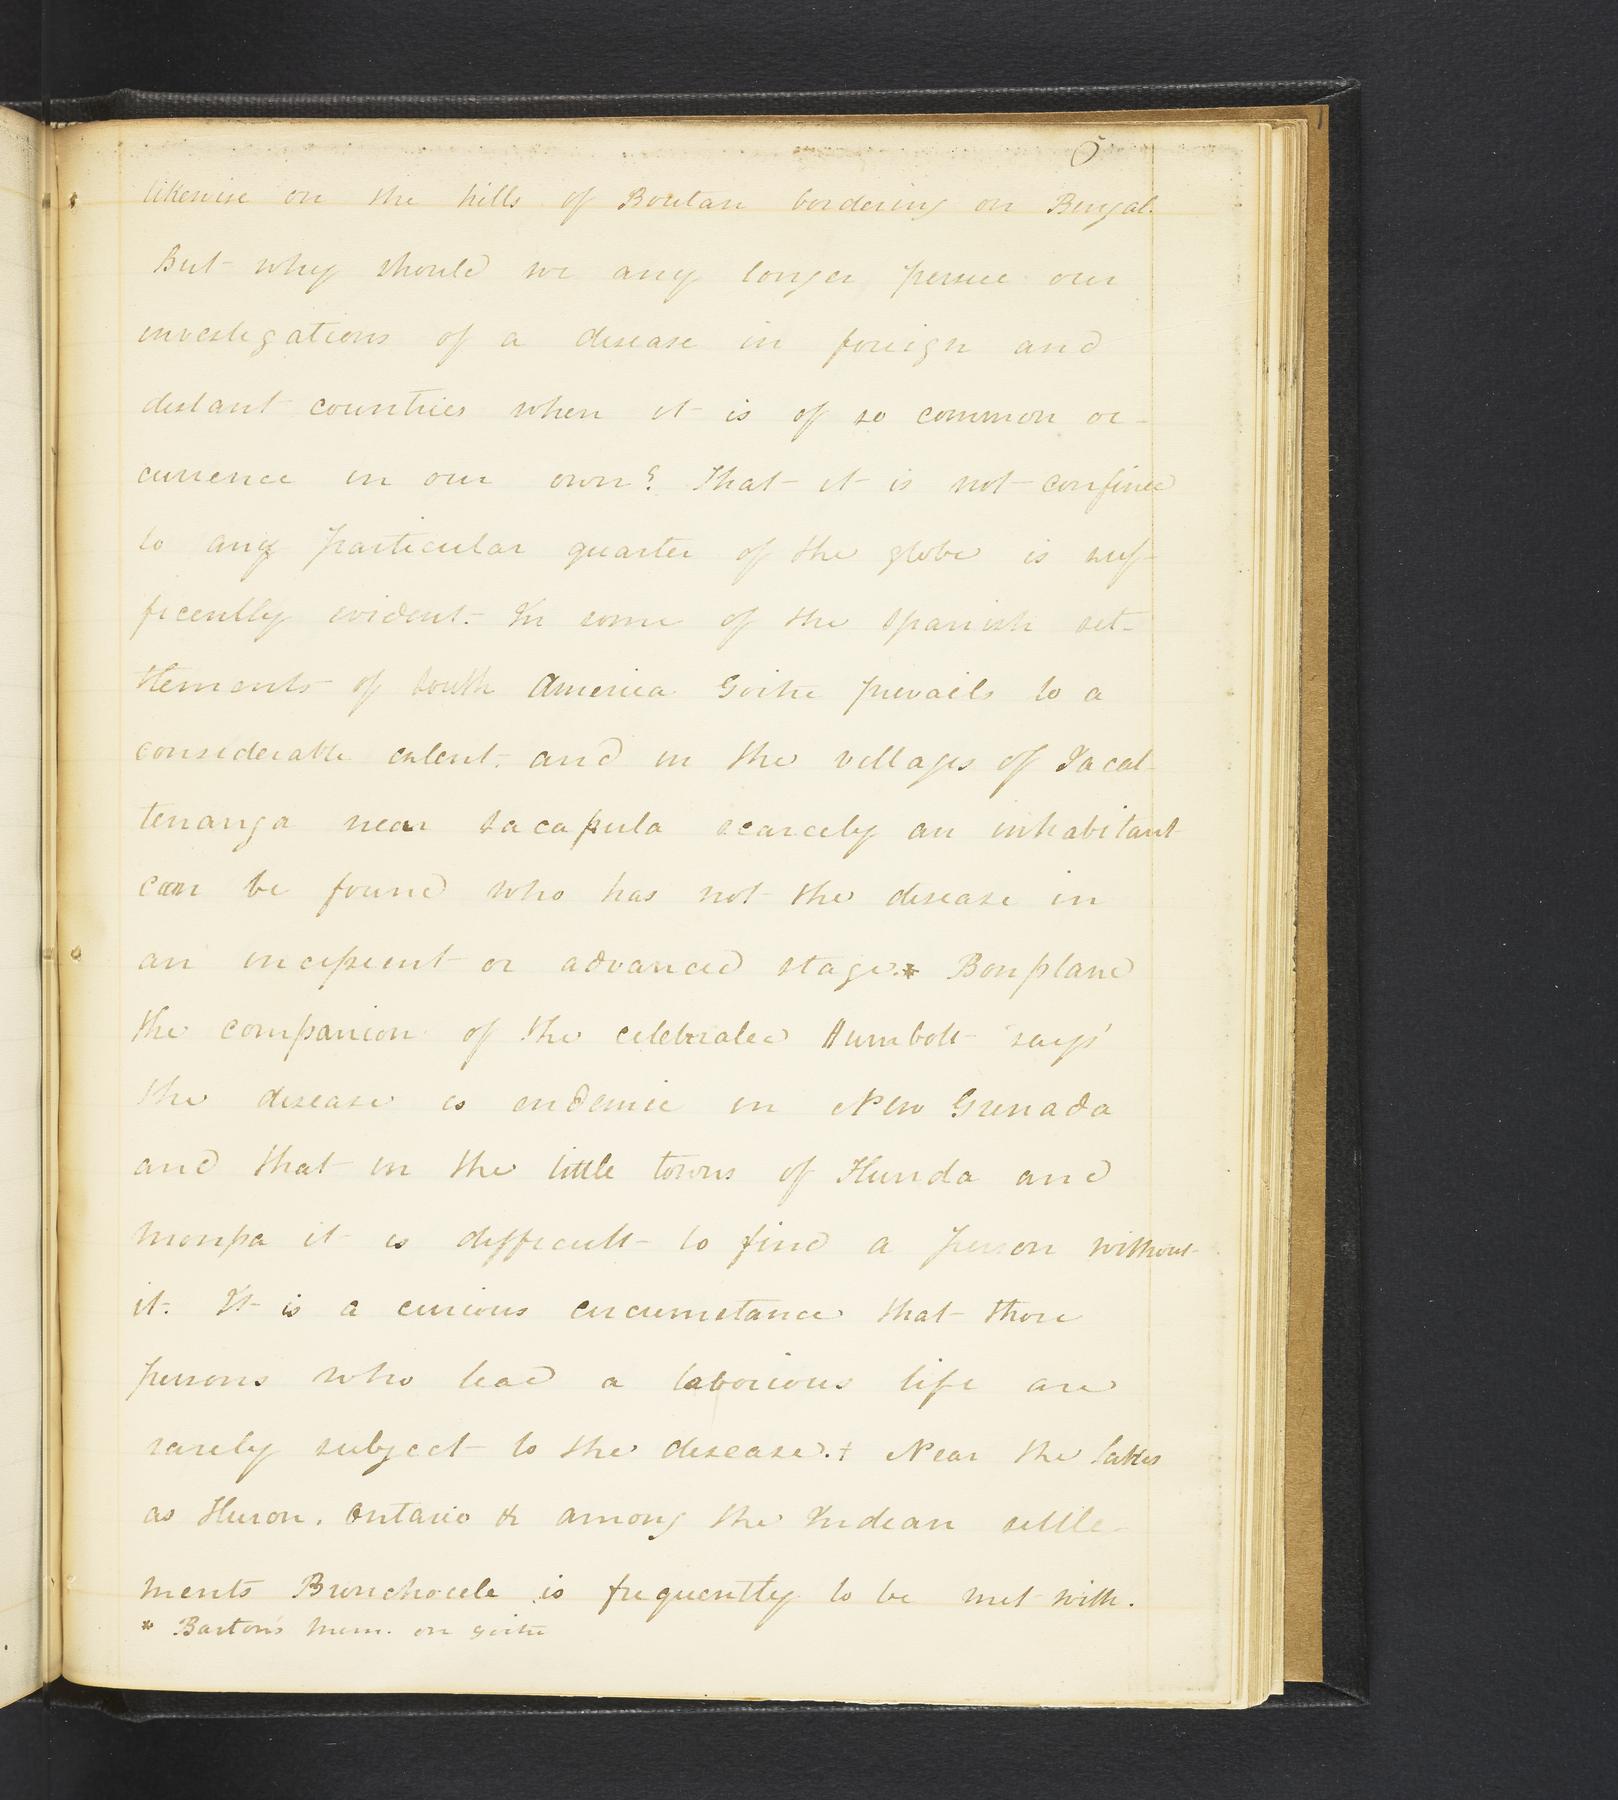 5
likewise on the hills of Boutan bordering on Bengal.
But why should we any longer persue our
investigations of a disease in foreign and
distant countries when it is of so common oc-
currence in our own? That it is not confined
to any particular quarter of the globe is suf-
ficently evident. In some of the Spanish set-
tlements of South America Goitre prevails to a
considerable extent. and in the villages of Jacal-
tenanga near Sacapula scarcely an inhabitant
can be found who has not the disease in
an incipient or advanced stage.* Bonpland
the companion of the celebrated Humbolt "says"
the disease is endemic in New Grenada
and that in the little towns of Hunda and
Monpa it is difficult to find a person without
it. It is a curious circumstance that those
persons who lead a laborious life are
rarely subject to the disease.‡ Near the lakes
as Huron, Ontario & among the Indian settle-
ments Bronchocele is frequently to be met with.
* Barton's Mem. on goitre